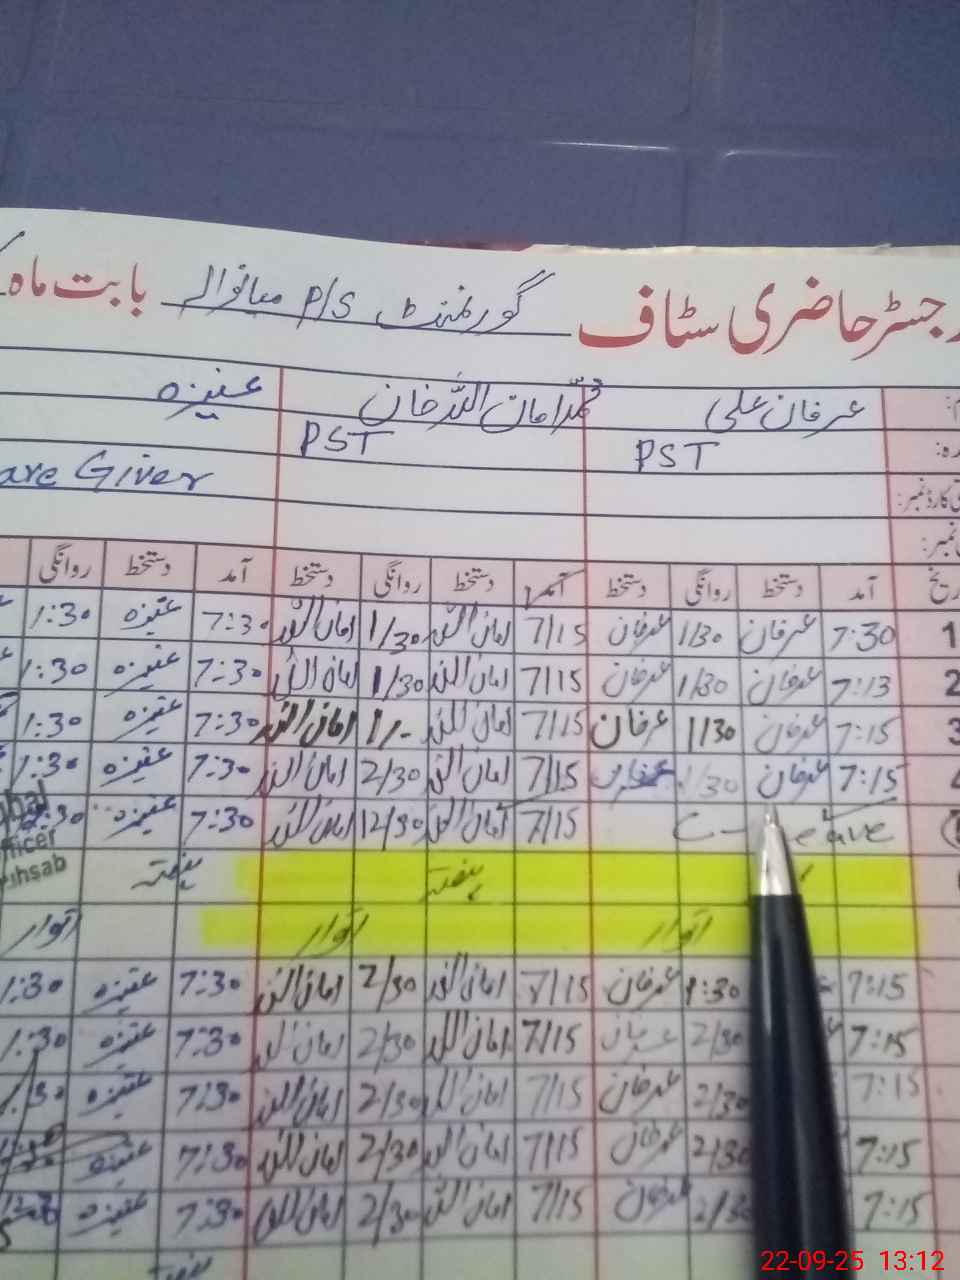 رجسٹر حاضری سٹاف گورنمنٹ P/S میانوالہ بابت ماہ
عرفان علی محمد امان اللہ خان عنیزہ
PST PST Care Giver
آمد دستخط روانگی دستخط آمد دستخط روانگی دستخط آمد دستخط روانگی
1 7:30 عرفان 1/30 عرفان 7/15 امان اللہ 1/30 امان اللہ 7:30 عنیزہ 1:30
2 7:13 عرفان 1/30 عرفان 7/15 امان اللہ 1/30 امان اللہ 7:30 عنیزہ 1:30
3 7:15 عرفان 1/30 عرفان 7/15 امان اللہ 1/- امان اللہ 7:30 عنیزہ 1:30
4 7:15 عرفان 1/30 عرفان 7/15 امان اللہ 2/30 امان اللہ 7:30 عنیزہ 1:30
C-Leave 7/15 امان اللہ 12/30 امان اللہ 7:30 عنیزہ
ہفتہ ہفتہ
اتوار اتوار اتوار
7:15 1:30 عرفان 7/15 امان اللہ 2/30 امان اللہ 7:30 عنیزہ 1:30
7:15 2/30 عرفان 7/15 امان اللہ 2/30 امان اللہ 7:30 عنیزہ 1:30
7:15 2/30 عرفان 7/15 امان اللہ 2/30 امان اللہ 7:30 عنیزہ
7:15 2/30 عرفان 7/15 امان اللہ 2/30 امان اللہ 7:30 عنیزہ
7:15 2/30 عرفان 7/15 امان اللہ 2/30 امان اللہ 7:30 عنیزہ
ہفتہ
22-09-25 13:12